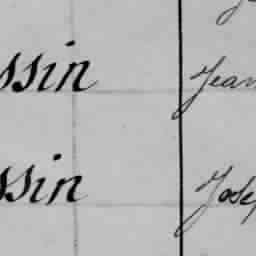 ssin Jean
ssin Josep